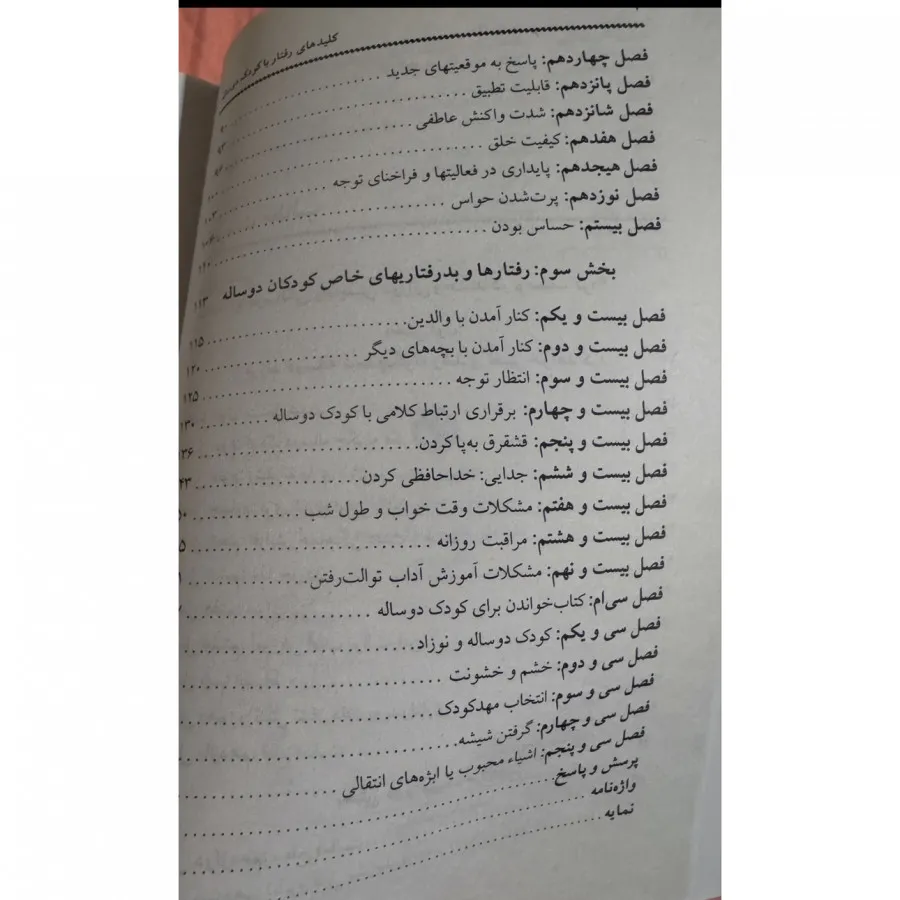 کلیدهای رفتار با کودک
فصل چهاردهم: پاسخ به موقعیتهای جدید
فصل پانزدهم: قابلیت تطبیق
فصل شانزدهم: شدت واکنش عاطفی
فصل هفدهم: کیفیت خلق
فصل هیجدهم: پایداری در فعالیتها و فراخنای توجه
فصل نوزدهم: پرت‌شدن حواس
فصل بیستم: حساس بودن
بخش سوم: رفتارها و بدرفتاریهای خاص کودکان دوساله ۱۱۳
فصل بیست و یکم: کنار آمدن با والدین ۱۱۵
فصل بیست و دوم: کنار آمدن با بچه‌های دیگر ۱۲۰
فصل بیست و سوم: انتظار توجه ۱۲۵
فصل بیست و چهارم: برقراری ارتباط کلامی با کودک دوساله ۱۳۰
فصل بیست و پنجم: قشقرق به‌پا کردن ۳۶
فصل بیست و ششم: جدایی: خداحافظی کردن ۴۳
فصل بیست و هفتم: مشکلات وقت خواب و طول شب ۵۰
فصل بیست و هشتم: مراقبت روزانه ۵
فصل بیست و نهم: مشکلات آموزش آداب توالت‌رفتن
فصل سی‌ام: کتاب‌خواندن برای کودک دوساله
فصل سی و یکم: کودک دوساله و نوزاد
فصل سی و دوم: خشم و خشونت
فصل سی و سوم: انتخاب مهدکودک
فصل سی و چهارم: گرفتن شیشه
فصل سی و پنجم: اشیاء محبوب یا ابژه‌های انتقالی
پرسش و پاسخ
واژه‌نامه
نمایه